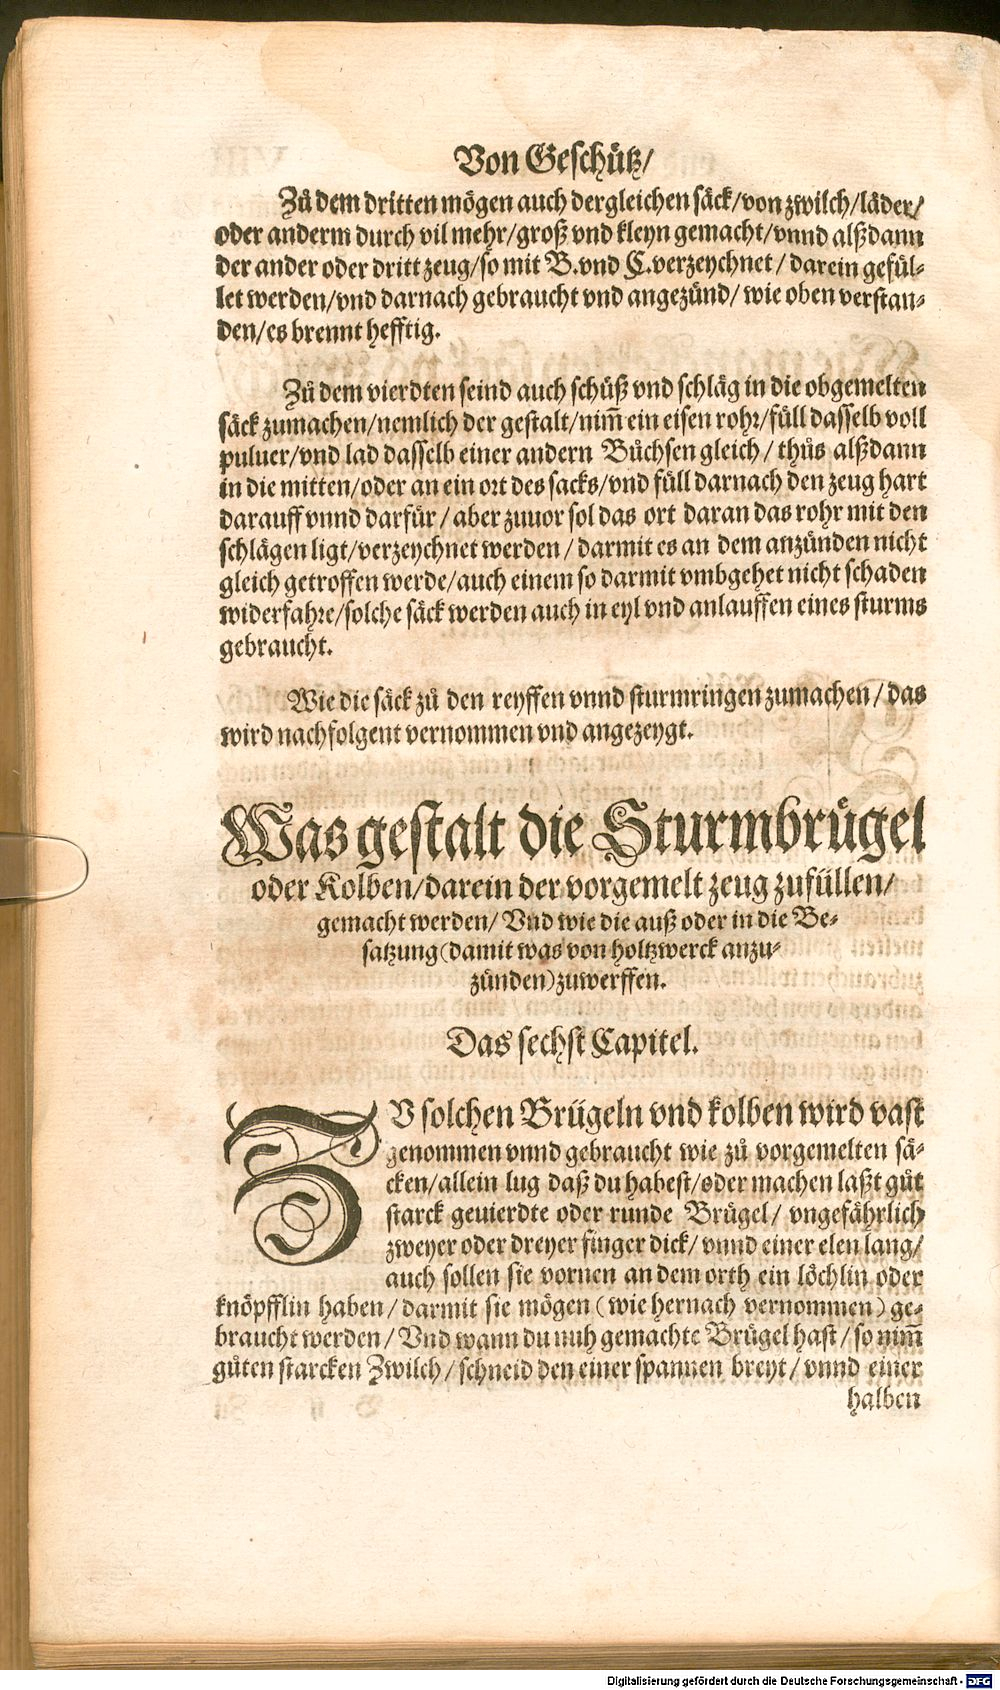 Von Geschütz/
Zů dem dritten mögen auch dergleichen säck/von zwilch/läder/
oder anderm durch vil mehr/groß vnd kleyn gemacht/vnnd alßdann
der ander oder dritt zeug/so mit B.vnd C.verzeychnet/darein gefül-
let werden/vnd darnach gebraucht vnd angezünd/ wie oben verstan-
den/es brennt hefftig.
Zů dem vierdten seind auch schüß vnd schläg in die obgemelten
säck zumachen/nemlich der gestalt/nim̃ ein eisen rohr/füll dasselb voll
puluer/vnd lad dasselb einer andern Büchsen gleich/ thůs alßdann
in die mitten/oder an ein ort des sacks/vnd füll darnach den zeug hart
darauff vnnd darfür/aber zuuor sol das ort daran das rohr mit den
schlägen ligt/verzeychnet werden/darmit es an dem anzünden nicht
gleich getroffen werde/auch einem so darmit vmbgehet nicht schaden
widerfahre/solche säck werden auch in eyl vnd anlauffen eines sturms
gebraucht.
Wie die säck zů den reyffen vnnd sturmringen zumachen/das
wird nachfolgent vernommen vnd angezeygt.
Was gestalt die Sturmbrügel
oder Kolben/darein der vorgemelt zeug zufüllen/
gemacht werden/ Vnd wie die auß oder in die Be-
satzung(damit was von holtzwerck anzu-
zünden)zuwerffen.
Das sechst Capitel.
ZV solchen Brügeln vnd kolben wird vast
genommen vnnd gebraucht wie zů vorgemelten sä-
cken/allein lug daß du habest/oder machen laßt gůt
starck geuierdte oder runde Brügel/ vngefährlich
zweyer oder dreyer finger dick/vnnd einer elen lang/
auch sollen sie vornen an dem orth ein löchlin oder
knöpfflin haben/darmit sie mögen(wie hernach vernommen)ge-
braucht werden/Vnd wann du nuh gemachte Brügel hast/so nim̃
gůten starcken Zwilch/schneid den einer spannen breyt/vnnd einer
halben
Digitalisierung gefördert durch die Deutsche Forschungsgemeinschaft - DFG